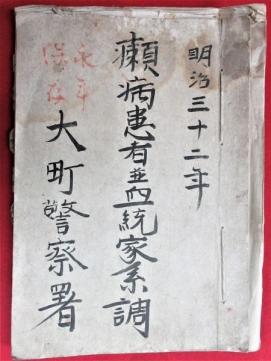 明治三十二年
癩病患者並血統家系調
大町警察署
永年
保存